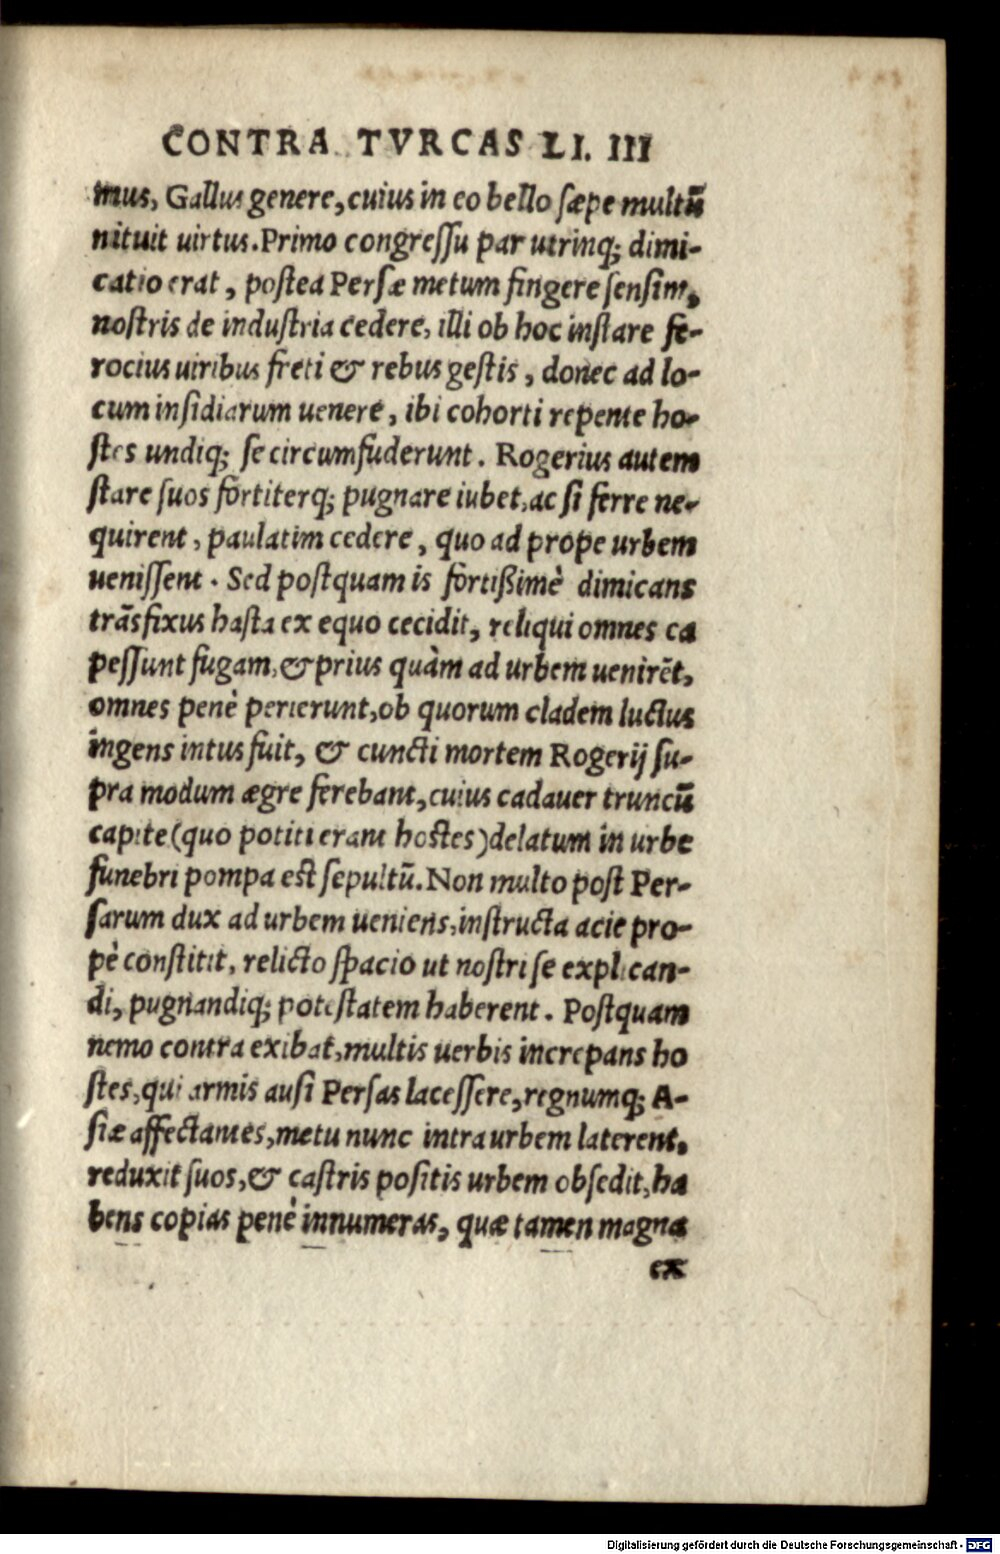 CONTRA TVRCAS LI. III
mus, Gallus genere, cuius in eo bello sæpe multũ
nituit uirtus. Primo congressu par utrinq; dimi-
catio erat, postea Persæ metum fingere sensim,
nostris de industria cedere, illi ob hoc instare fe-
rocius uiribus freti & rebus gestis, donec ad lo-
cum insidiarum uenere, ibi cohorti repente ho-
stes undiq; se circumfuderunt. Rogerius autem
stare suos fortiterq; pugnare iubet, ac si ferre ne-
quirent, paulatim cedere, quo ad prope urbem
uenissent. Sed postquam is fortißimè dimicans
trãsfixus hasta ex equo cecidit, reliqui omnes ca
pessunt fugam, & prius quàm ad urbem uenirẽt,
omnes penè perierunt, ob quorum cladem luctus
ingens intus fuit, & cuncti mortem Rogerij su-
pra modum ægre ferebant, cuius cadauer truncũ
capite (quo potiti erant hostes) delatum in urbe
funebri pompa est sepultũ. Non multo post Per-
sarum dux ad urbem ueniens, instructa acie pro-
pè constitit, relicto spacio ut nostri se explican-
di, pugnandiq; potestatem haberent. Postquam
nemo contra exibat, multis uerbis increpans ho
stes, qui armis ausi Persas lacessere, regnumq; A-
siæ affectantes, metu nunc intra urbem laterent,
reduxit suos, & castris positis urbem obsedit, ha
bens copias penè innumeras, quæ tamen magna
ex
Digitalisierung gefördert durch die Deutsche Forschungsgemeinschaft - DFG